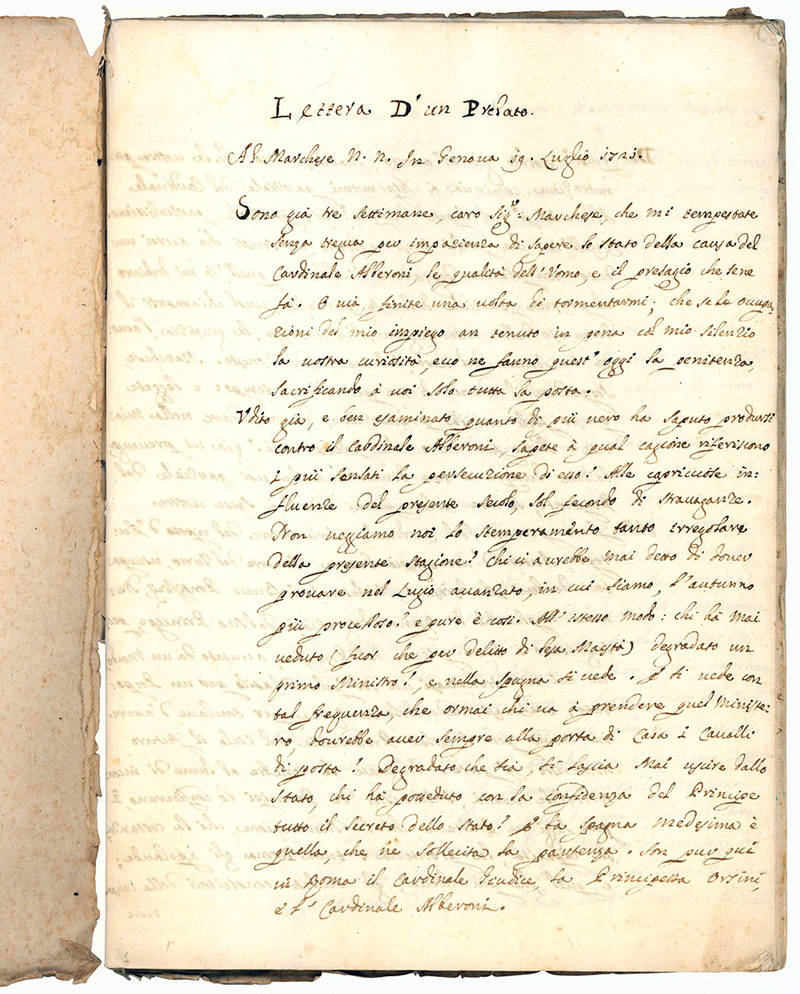 Lettera D'un Prelato.
Al Marchese N. N. In Genova 19. Luglio 1721.
Sono già tre settimane, caro Sig.re Marchese, che mi tempestate
senza tregua per impazienza di sapere lo stato della causa del
Cardinale Alberoni, le qualità dell'Uomo, e il presagio che sene
fà. O via, finite una volta di tormentarmi; che se le occupa-
zioni del mio impiego an tenuto in pena col mio silenzio
la vostra curiosità, ecco ne fanno quest'oggi la penitenza,
sacrificando à voi solo tutta la posta.
Udito già, e ben esaminato quanto di più nero ha saputo prodursi
contro il Cardinale Alberoni, sapete à qual cagione riferiscono
i più sensati la persecuzione di esso? Alle capricciose in-
fluenze del presente secolo, sol fecondo di stravaganze.
Non veggiamo noi lo stemperamento tanto irregolare
della presente stagione? Chi ci aurebbe mai detto di dover
provare nel Luglio auanzato, in cui siamo, l'autunno
più procelloso? e pure è così. All'istesso modo: chi hà mai
veduto (fuor che per delitto di lesa Maestà) degradato un
primo Ministro?, e nella Spagna si vede. E si vede con
tal frequenza, che ormai chi va à prendere quel Ministe-
ro, dourebbe aver sempre alla porta di Casa i Cavalli
di posta? Degradato che sia, si lascia Mai uscire dallo
stato, chi hà posseduto con la confidenza del Principe
tutto il secreto dello stato? E la Spagna medesima è
quella, che ne sollecita la partenza. Son pur quì
in Roma il Cardinale Giudice, la Principessa Orsini,
e l' Cardinale Alberoni.